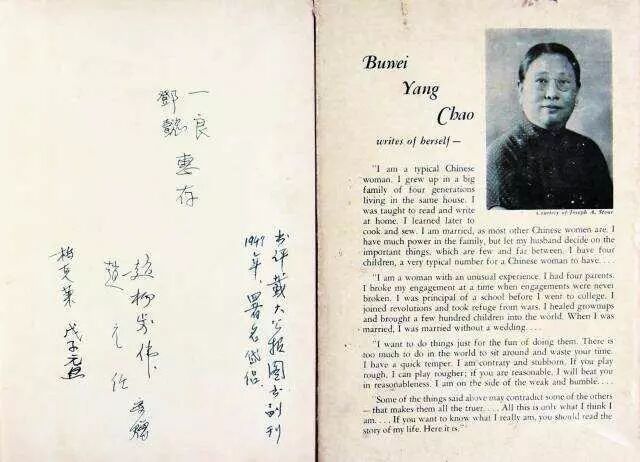 一良
鄧懿 惠存
趙楊步偉
趙元任
柏克萊 戊子元旦
书评載大公报图书副刊
1947年,署名
Buwei
Yang
Chao
writes of herself—
Courtesy of Joseph A. Stone
"I am a typical Chinese
woman. I grew up in a big
family of four generations
living in the same house. I
was taught to read and write
at home. I learned later to
cook and sew. I am married, as most other Chinese women are. I
have much power in the family, but let my husband decide on the
important things, which are few and far between. I have four
children, a very typical number for a Chinese woman to have....
"I am a woman with an unusual experience. I had four parents.
I broke my engagement at a time when engagements were never
broken. I was principal of a school before I went to college. I
joined revolutions and took refuge from wars. I healed grownups
and brought a few hundred children into the world. When I was
married, I was married without a wedding....
"I want to do things just for the fun of doing them. There is
too much to do in the world to sit around and waste your time.
I have a quick temper. I am contraty and stubborn. If you play
rough, I can play rougher; if you are reasonable, I will beat you
in reasonableness. I am on the side of the weak and humble....
"Some of the things said above may contradict some of the others
—that makes them all the truer.... All this is only what I think I
am.... If you want to know what I really am, you should read the
story of my life. Here it is."